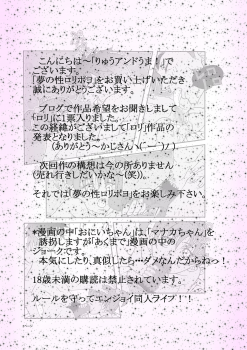 こんにちは～「りゅうアンドうま！」で
ございます。
「夢の性ロリポヨ」をお買い上げいただき
誠にありがとうございます。
ブログで作品希望をお聞きしまして
「ロリ」に1票入りました。
この経緯がございまして「ロリ」作品の
発表となりました。
(ありがとう～かじさんヽ(´ー`)ノ)
次回作の構想は今の所ありません
(売れ行きしだいかな～(笑)。
それでは「夢の性ロリポヨ」をお楽しみ下さい。
*漫画の中「おにいちゃん」は、「マナカちゃん」を
誘拐しますが「あくまで」漫画の中の
ジョークです。
本気にしたり、真似したら…ダメなんだからねっ！
18歳未満の購読は禁止されています。
ルールを守ってエンジョイ同人ライブ！！